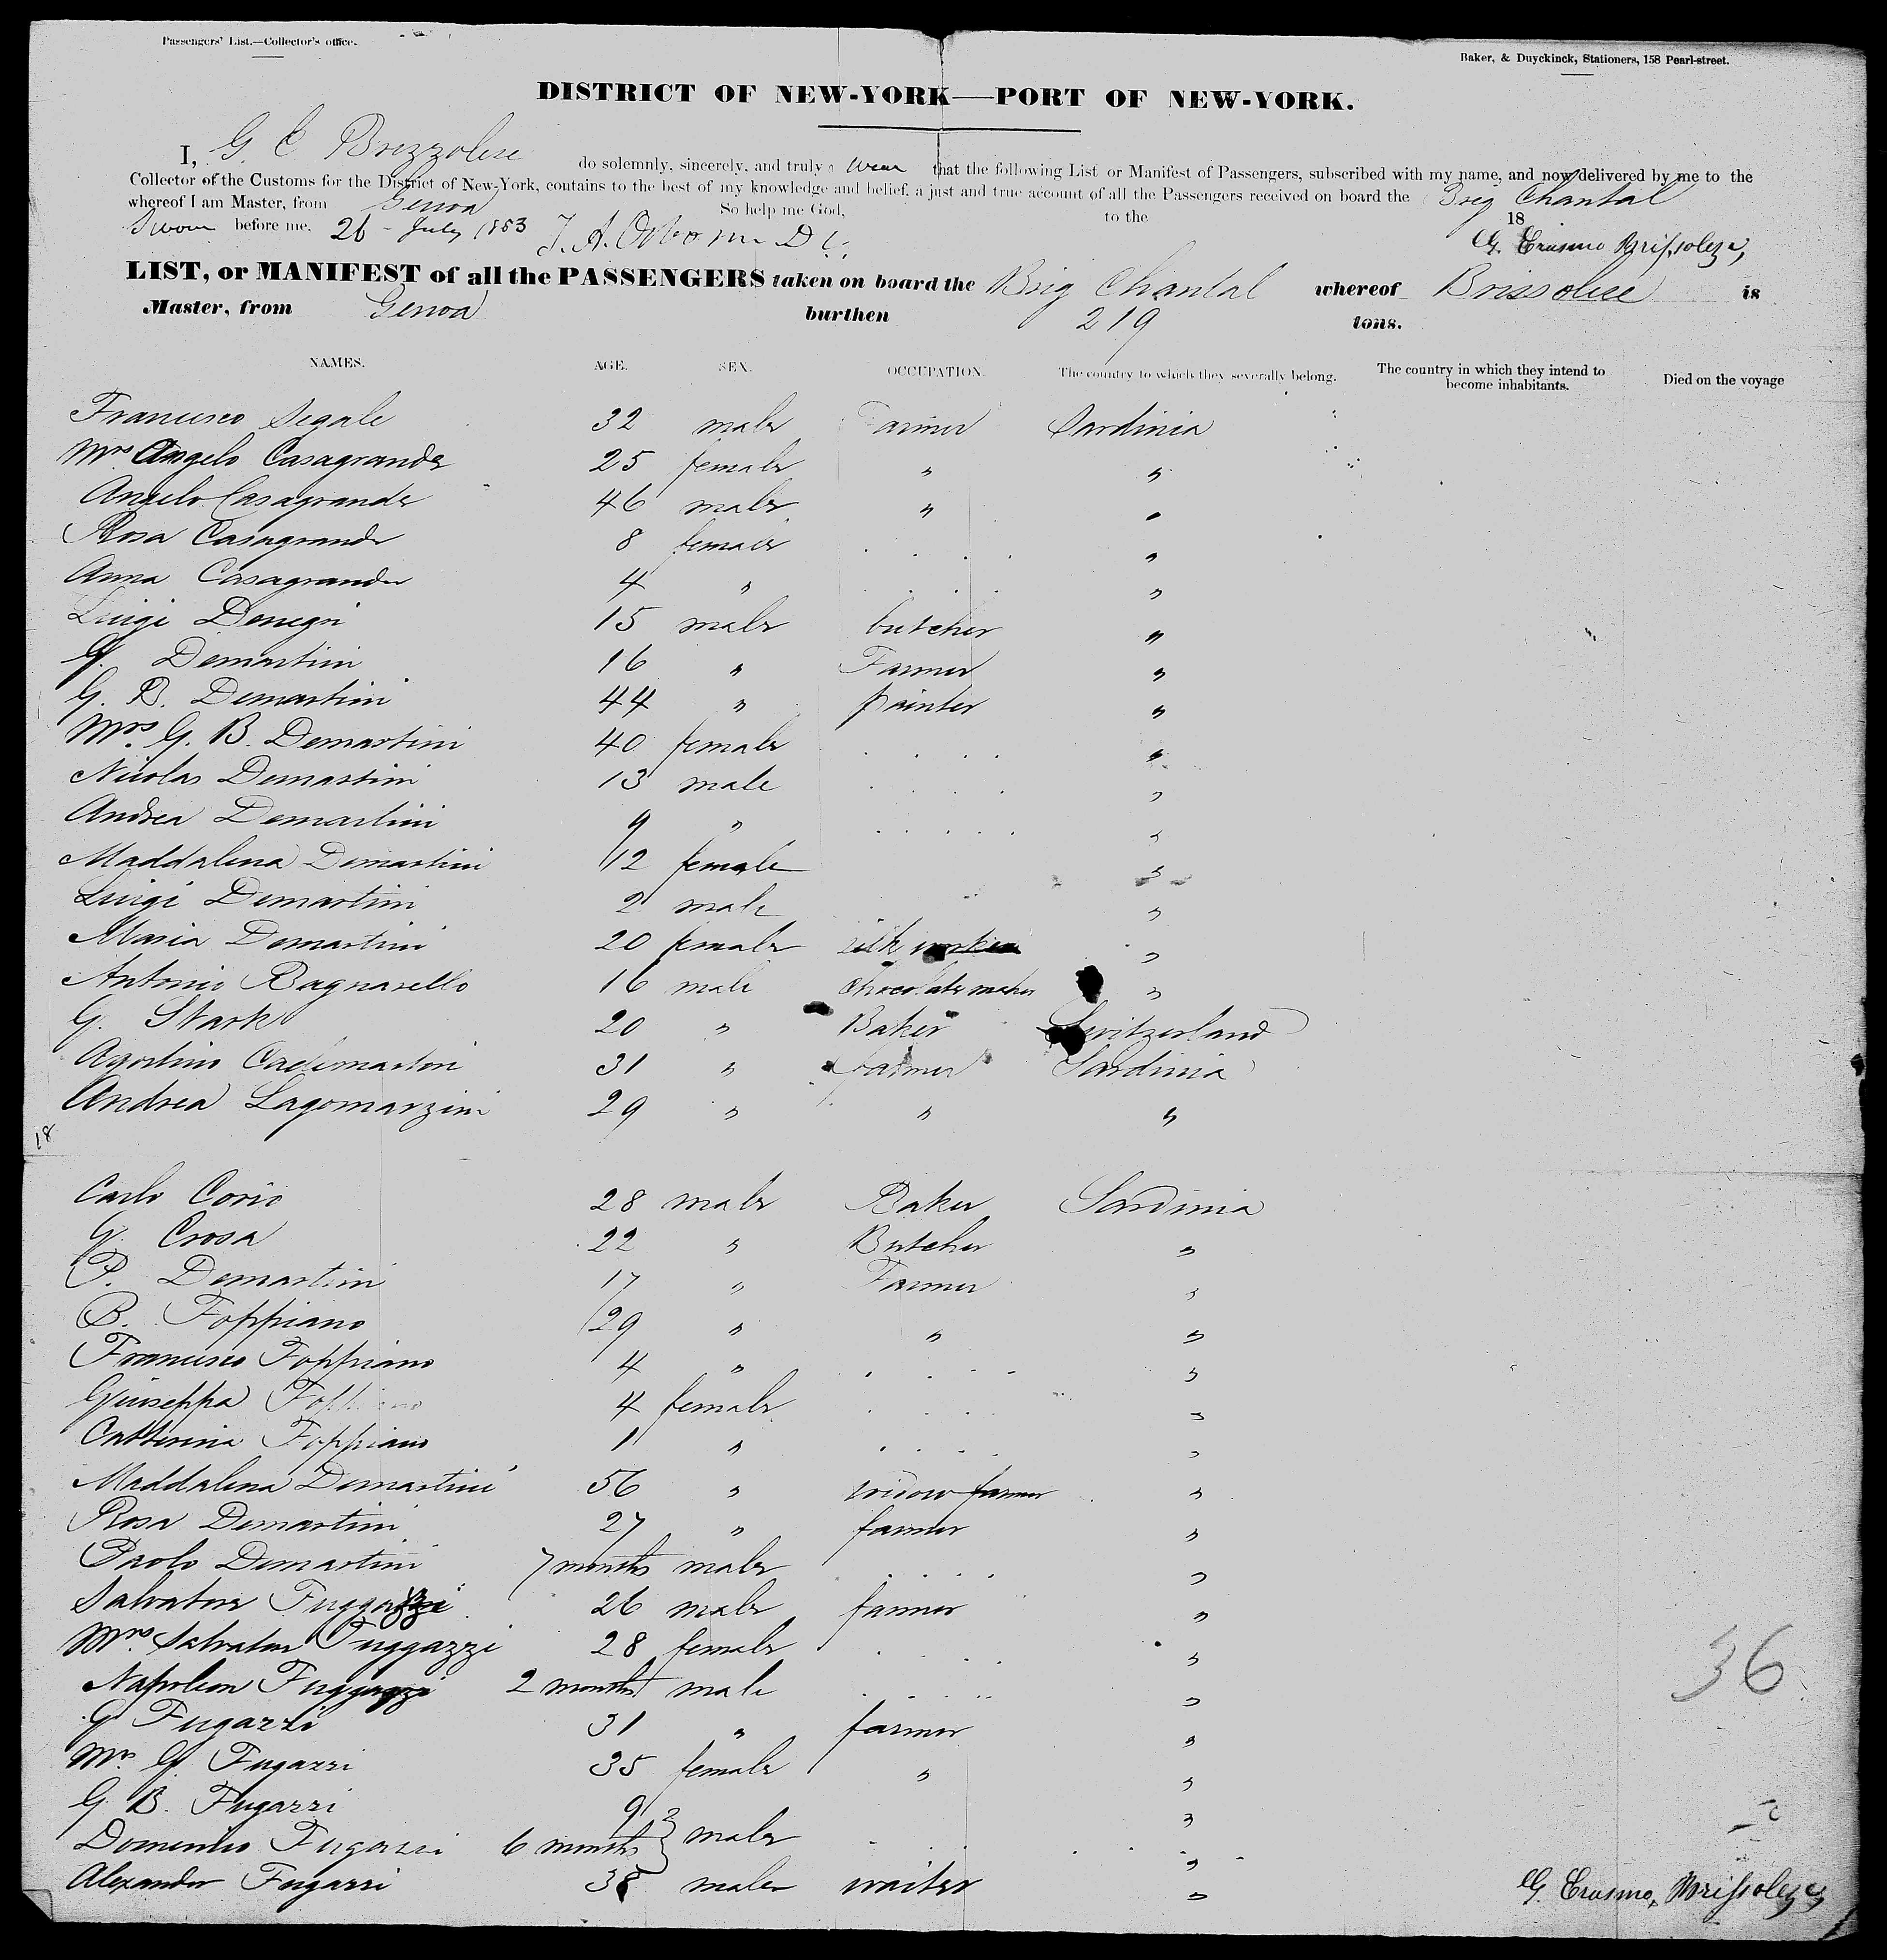 Passengers' List.—Collector's office.
Baker, & Duyckinck, Stationers, 158 Pearl-street.
DISTRICT OF NEW-YORK—PORT OF NEW-YORK.
I, G. C Brizzolese do solemnly, sincerely, and truly swear that the following List or Manifest of Passengers, subscribed with my name, and now delivered by me to the
Collector of the Customs for the District of New-York, contains to the best of my knowledge and belief, a just and true account of all the Passengers received on board the Brig Chantal
whereof I am Master, from Genoa So help me God, to the 18
Sworn before me, 26 - July 1853 J. A. Osborn D C. G. Erasmo Brissolese,
LIST, or MANIFEST of all the PASSENGERS taken on board the Brig Chantal whereof Brissolese is
Master, from Genoa burthen 219 tons.
NAMES. AGE. SEX. OCCUPATION. The country to which they severally belong. The country in which they intend to become inhabitants. Died on the voyage
Francisco Segale 32 male Farmer Sardinia
Mrs Angelo Casagrande 25 female " "
Angelo Casagrande 46 male " "
Rosa Casagrande 8 female . . . . "
Anna Casagrande 4 " . . . "
Luigi Denegri 15 male butcher "
G. Demartini 16 " Farmer "
G. B. Demartini 44 " painter "
Mrs. G. B. Demartini 40 female . . . . "
Nicolas Demartini 13 male . . . . "
Andrea Demartini 9 " . . . . . "
Maddalena Demartini 12 female "
Luigi Demartini 2 male "
Maria Demartini 20 female silk worker "
Antonio Bagnarello 16 male chocolate maker "
G. Stark 20 " Baker Switzerland
Agostino Cademartori 31 " farmer Sardinia
Andrea Lagomarzini 29 " " "
18
Carlo Corio 28 male Baker Sardinia
G. Crosa 22 " Butcher "
P. Demartini 17 " Farmer "
B. Foppiano 29 " " "
Francisco Foppiano 4 " . . . . "
Giuseppa Foppiano 4 female . . . . "
Catterina Foppiano 1 " . . . . "
Maddalena Demartini 56 " widow farmer "
Rosa Demartini 27 " farmer "
Paolo Demartini 7 months male . . . . "
Salvatore Fuggazzi 26 male farmer "
Mrs. Salvatore Fuggazzi 28 female . . . . "
Napoleon Fuggazzi 2 months male . . . . . "
G Fugazzi 31 " farmer "
Mrs. G. Fugazzi 35 female " "
G. B. Fugazzi 9 "
Domenico Fugazzi 6 months } male . . . . "
Alexander Fugazzi 38 male waiter "
36
G. Erasmo, Brissolese